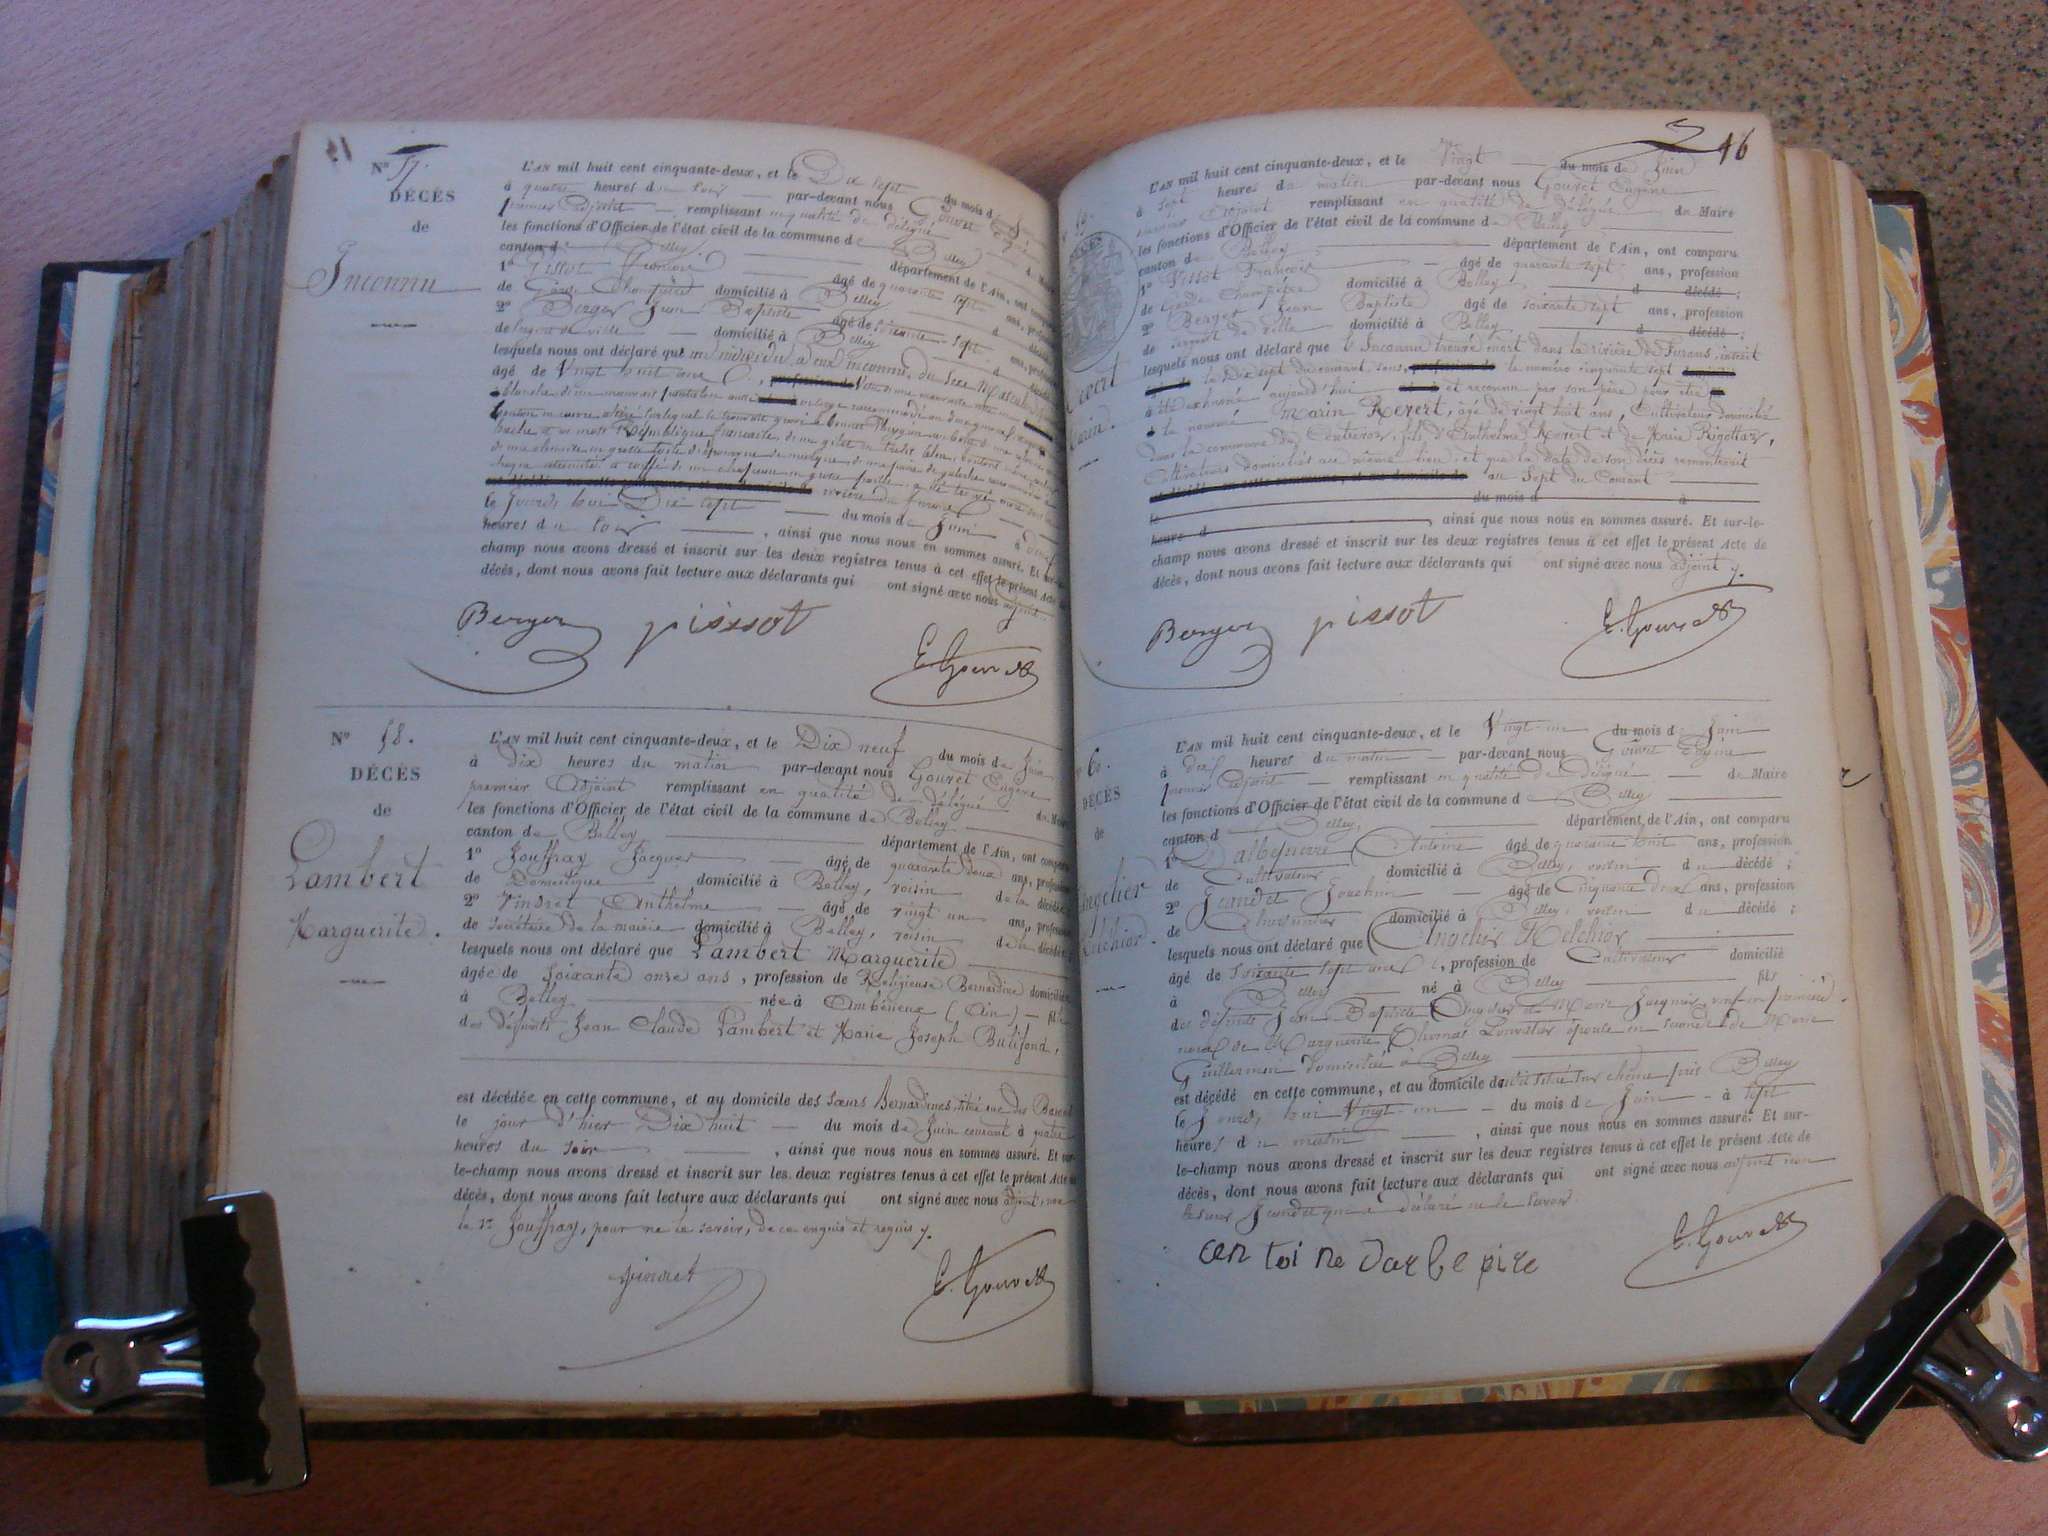 Nº 57.
DÉCÈS
de
Inconnu
L'AN mil huit cent cinquante-deux, et le Dix sept du mois de
à quatre heures du soir par-devant nous Gouvet Eugène
premier Adjoint remplissant en qualité de délégué
les fonctions d'Officier de l'état civil de la commune de Belley
canton de Belley département de l'Ain, ont
1º Pissot François âgé de quarante sept ans,
de Garde Champêtre domicilié à Belley
2º Berger Jean Baptiste âgé de soixante sept ans,
de Sergent de ville domicilié à Belley
lesquels nous ont déclaré que un individu à eux inconnu, du sexe Masculin
âgé de Vingt huit ans
rivière du Furans
le Jourd'hui Dix sept du mois de Juin à
heures du soir , ainsi que nous nous en sommes assuré. Et sur-le-
champ nous avons dressé et inscrit sur les deux registres tenus à cet effet le présent Acte de
décès, dont nous avons fait lecture aux déclarants qui ont signé avec nous adjoint
Berger pissot E. Gouvet
Nº 58.
DÉCÈS
de
Lambert
Marguerite.
L'AN mil huit cent cinquante-deux, et le Dix neuf du mois de Juin
à dix heures du matin par-devant nous Gouvet Eugène
premier Adjoint remplissant en qualité de délégué du Maire
les fonctions d'Officier de l'état civil de la commune de Belley
canton de Belley département de l'Ain, ont comparu
1º Jouffray Jacques âgé de quarante deux ans, profession
de Domestique domicilié à Belley, voisin de la décédée;
2º Vindret Anthelme âgé de vingt un ans, profession
de Secrétaire de la mairie domicilié à Belley, voisin de la décédée;
lesquels nous ont déclaré que Lambert Marguerite
âgée de soixante onze ans, profession de Religieuse Bernardine domiciliée
à Belley née à Ambérieux (Ain) fille
des défunts Jean Claude Lambert et Marie Joseph Bulifond,
est décédée en cette commune, et au domicile des Sœurs Bernardines, située rue des Barons
le jour d'hier Dix huit du mois de Juin courant à quatre
heures du soir , ainsi que nous nous en sommes assuré. Et sur-
le-champ nous avons dressé et inscrit sur les deux registres tenus à cet effet le présent Acte de
décès, dont nous avons fait lecture aux déclarants qui ont signé avec nous adjoint, non
le Sr Jouffray, pour ne le savoir, de ce enquis et requis
E. Gouvet
16
59.
Revert
Marin.
L'AN mil huit cent cinquante-deux, et le Vingt du mois de Juin
à sept heures du matin par-devant nous Gouvet Eugène
premier Adjoint remplissant en qualité de délégué du Maire
les fonctions d'Officier de l'état civil de la commune de Belley
canton de Belley département de l'Ain, ont comparu
1º Pissot François âgé de quarante sept ans, profession
de Garde Champêtre domicilié à Belley d décédé;
2º Berger Jean Baptiste âgé de soixante sept ans, profession
de Sergent de ville domicilié à Belley d décédé;
lesquels nous ont déclaré que l'Inconnu trouvé mort dans la rivière de Furans, inscrit
le Dix sept du courant, sous le numéro cinquante sept
a été exhumé aujourd'hui et reconnu par son père pour être
le nommé Marin Revert, âgé de vingt huit ans, Cultivateur domicilié
dans la commune de fils d'Anthelme Revert et de Marie
Cultivateurs domiciliés au même lieu; et que la date de son décès remonterait
au Sept du Courant
le du mois d à
heures d , ainsi que nous nous en sommes assuré. Et sur-le-
champ nous avons dressé et inscrit sur les deux registres tenus à cet effet le présent Acte de
décès, dont nous avons fait lecture aux déclarants qui ont signé avec nous adjoint
Berger pissot E. Gouvet
60.
DÉCÈS
de
L'AN mil huit cent cinquante-deux, et le Vingt-un du mois de Juin
à dix heures du matin par-devant nous Gouvet Eugène
premier Adjoint remplissant en qualité de délégué du Maire
les fonctions d'Officier de l'état civil de la commune de Belley
canton de Belley, département de l'Ain, ont comparu
1º Antoine âgé de quarante huit ans, profession
de Cultivateur domicilié à Belley, voisin du décédé;
2º Joachim âgé de Cinquante deux ans, profession
de Charpentier domicilié à Belley, voisin du décédé;
lesquels nous ont déclaré que Melchior
âgé de soixante sept ans, profession de Cultivateur domicilié
à Belley né à Belley fils
des défunts Jean Baptiste et Marie
de Marguerite Thomas époux en secondes de Marie
Guillermin domiciliée à Belley
est décédé en cette commune, et au domicile près Belley
le Jourd'hui Vingt-un du mois de Juin à sept
heures du matin , ainsi que nous nous en sommes assuré. Et sur-
le-champ nous avons dressé et inscrit sur les deux registres tenus à cet effet le présent Acte de
décès, dont nous avons fait lecture aux déclarants qui ont signé avec nous adjoint non
a déclaré ne le savoir
can toi ne darbepire E. Gouvet